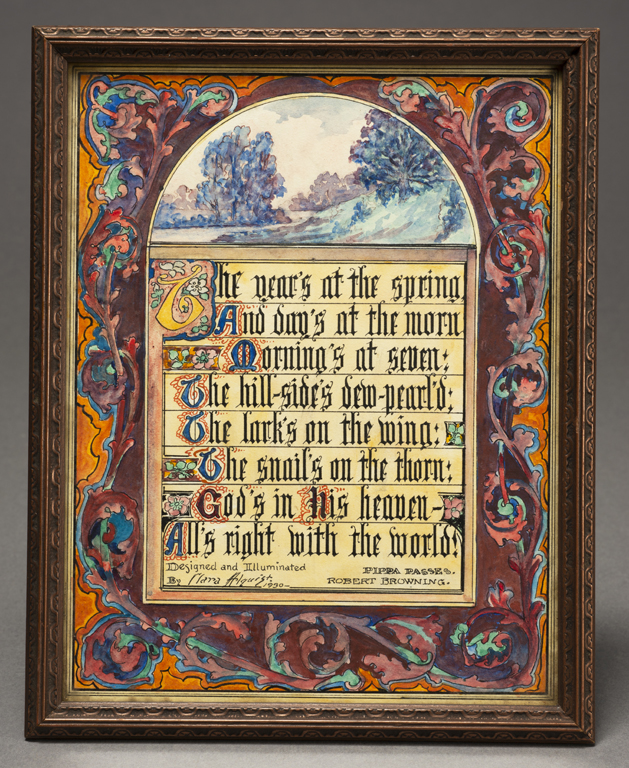 The year's at the spring,
And day's at the morn
Morning's at seven:
The hill-side's dew-pearl'd:
The lark's on the wing:
The snail's on the thorn:
God's in His heaven—
All's right with the world!
Designed and Illuminated
By Clara
1930—
PIPPA PASSES.
ROBERT BROWNING.